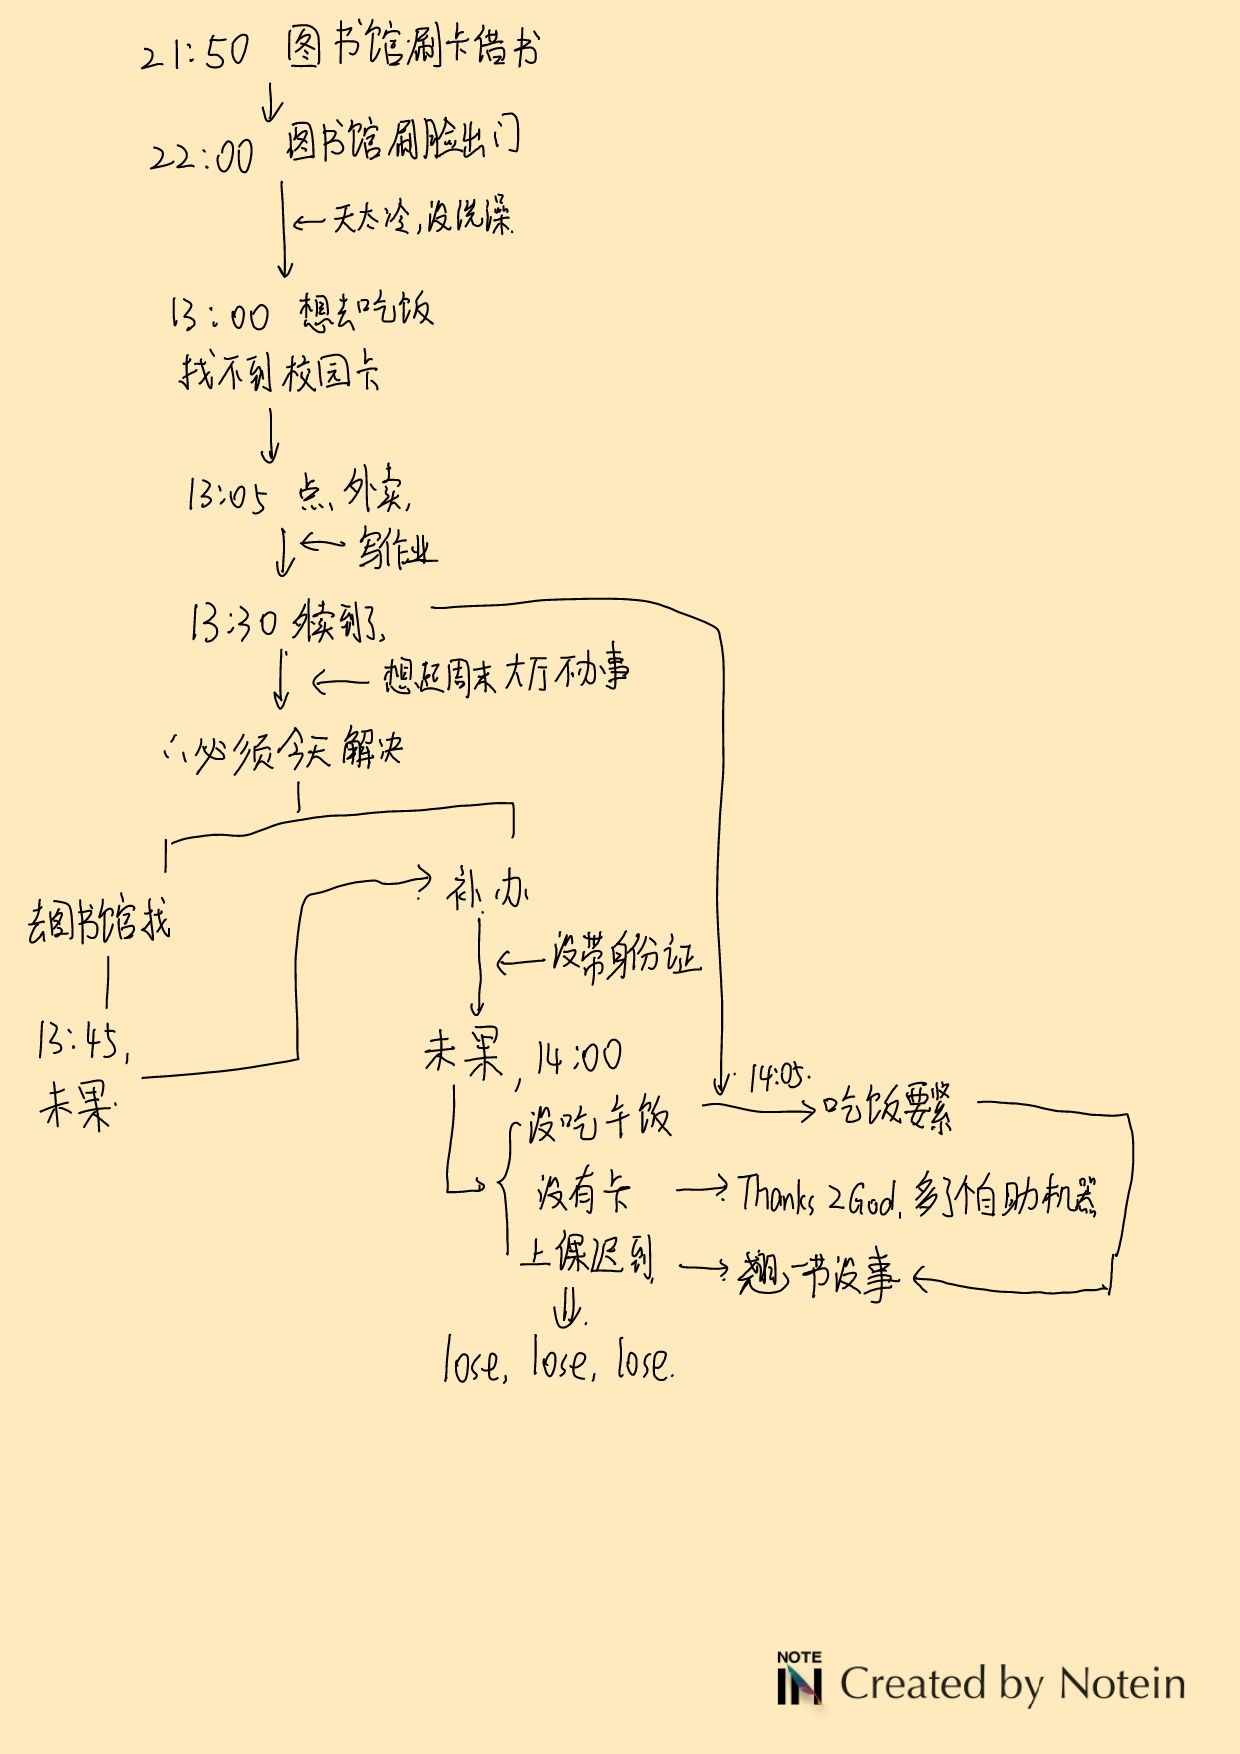 21:50 图书馆刷卡借书
22:00 图书馆刷脸出门
天太冷,没洗澡.
13:00 想去吃饭
找不到校园卡
13:05 点外卖,
写作业
13:30 外卖到了,
想起周末大厅不办事
∴必须今天解决
去图书馆找
补办
没带身份证
13:45,
未果.
未果, 14:00
14:05.
没吃午饭
吃饭要紧
没有卡
Thanks 2God, 多了个自助机器
上课迟到
翘一节没事
lose, lose, lose.
NOTE
IN
Created by Notein